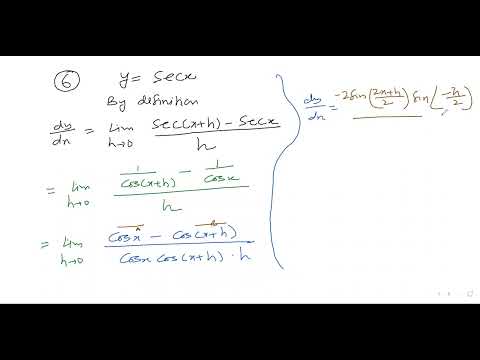 ⑥ y = Secx
By definition
dy/dx = lim h→0 Sec(x+h) - Secx / h
= lim h→0 1/Cos(x+h) - 1/Cosx / h
= lim h→0 Cosx - Cos(x+h) / Cosx Cos(x+h) · h
dy/dx = -2 Sin(2x+h/2) Sin(-h/2)